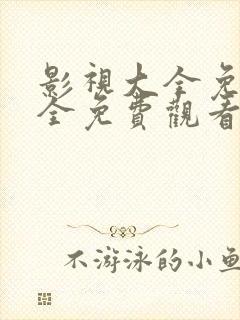 影視大全免
全免費觀看
不游泳的小魚